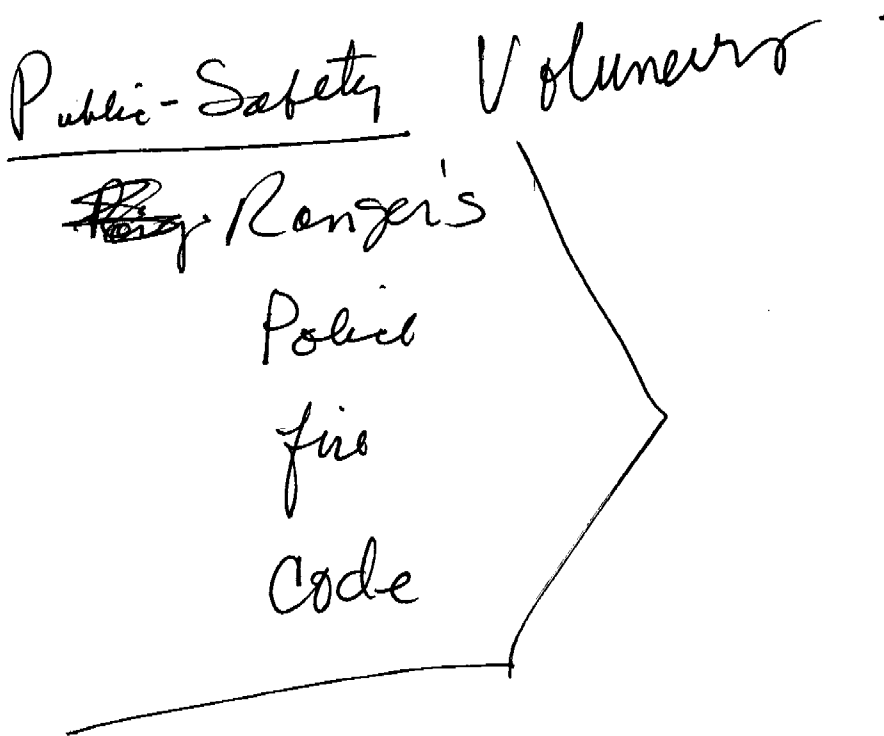 Public-Safety Voluneers
Ranger's
Police
fire
Code